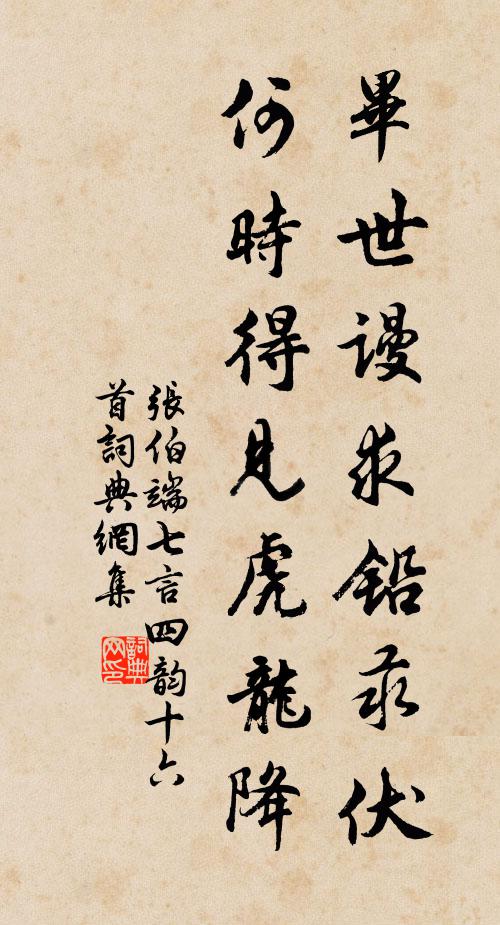 畢世謾求鉛汞伏
何時得見虎龍降
張伯端七言四韵十六
首詞典網集
詞典网印